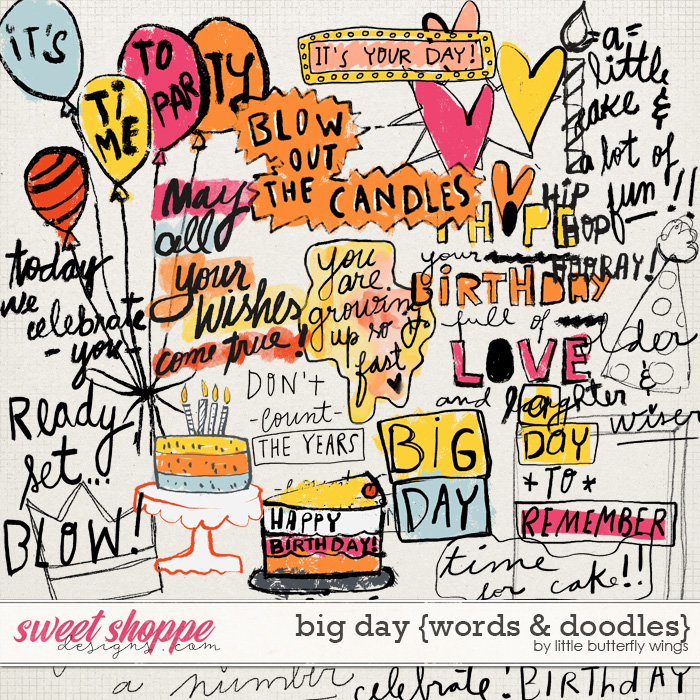 iT'S
Ti
ME
TO
PAR
TY
IT'S YOUR DAY!
a
little
cake &
a lot of
fun!!
BLOW
OUT
THE CANDLES
May
all
your
wishes
come true!
today
we
celebrate
- you -
you
are
growing
up so
fast
HiP
HOP
HOORAY!
I HOPE
your
BiRTHDAY
full of
LOVE
and laughter
older
&
wiser
DON'T
- count -
THE YEARS
Ready
set...
BLOW!
BiG
DAY
HAPPY
BIRTHDAY!
a
DAY
* TO *
REMEMBER
time
for cake!!
sweet shoppe
designs.com
big day {words & doodles}
by little butterfly wings
a number
celebrate! BiRTHDAY